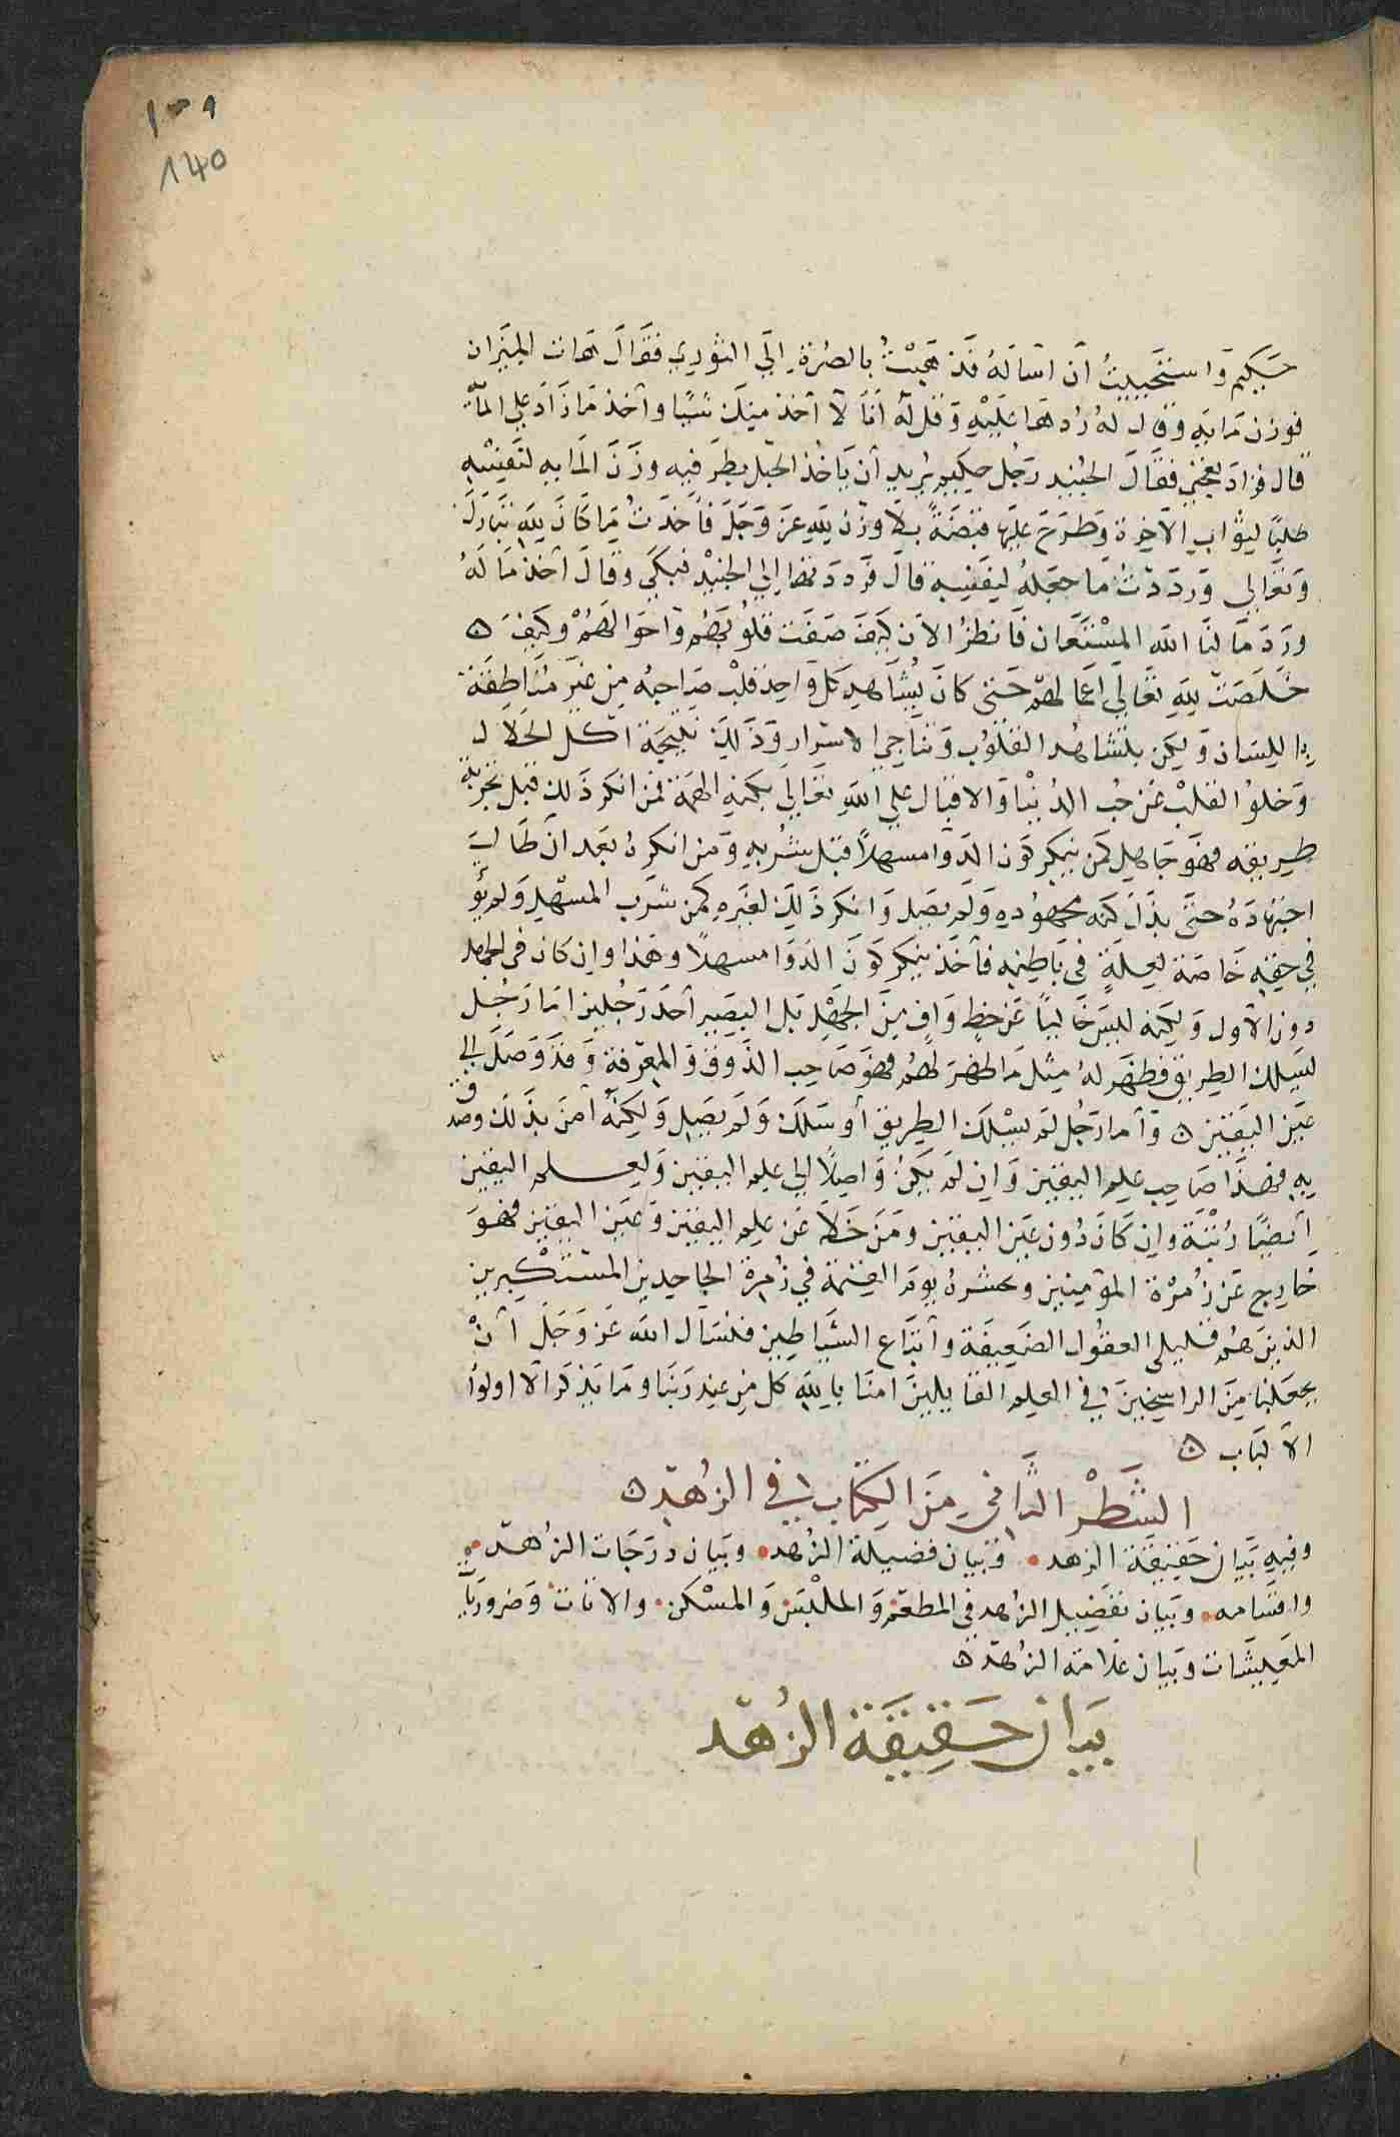 ١٣٩
140
حكيم واستحييت ان اساله فذهبت بالصرة الي النوري فقال هات الميزان
فوزن مايه وقال له ردها عليه وقل له انا لا آخذ منك شيا وآخذ ما زاد علي المأية
قال فزاد تعجبي فقال الجنيد رجل حكيم يريد ان ياخذ الحبل بطرفيه وزن المايه لنفسه
طلبًا لثواب الآخرة وطرح عليها قبضة بلا وزن لله عز وجل فاخذت ما كان لله تبارك
وتعالي ورددت ما جعله لنفسه قال فرددتها الي الجنيد فبكي وقال آخذ ما له
ورد ما لنا الله المستعان فانظر الآن كيف صفت قلوبهم واحوالهم وكيف ۝
خلصت لله تعالي اعمالهم حتى كان يشاهد كل واحد قلب صاحبه من غير مناطقة
باللسان ولكن بتشاهد القلوب وتناجي الاسرار وذلك نتيجة اكل الحلال
وخلو القلب عن حب الدنيا والاقبال علي الله تعالي بكنه الهمة فمن انكر ذلك قبل تجربة
طريقه فهو جاهل كمن ينكر كون الدوا مسهلاً قبل شربه ومن انكره بعد ان طالت
اجتهاده حتى بذل كنه مجهوده ولم يصل وانكر ذلك لغيره كمن شرب المسهل ولم يؤ
في حقه خاصة لعلة في باطنه فأخذ ينكر كون الدوا مسهلاً وهذا وان كان في الجهل
دون الاول ولكنه ليس خاليًا عن حظ واف من الجهل بل البصير أحد رجلين اما رجل
يسلك الطريق فظهر له مثل ما ظهر لهم فهو صاحب الذوق والمعرفة وقد وصل الي
عين اليقين ۝ وأما رجل لم يسلك الطريق أو سلك ولم يصل ولكنه آمن بذلك وصدق
به فهذا صاحب علم اليقين وان لم يكن واصلاً الي علم اليقين ولعلم اليقين
أيضًا رتبة وان كان دون عين اليقين ومن خلا عن علم اليقين وعين اليقين فهو
خارج عن زمرة المؤمنين ويحشر يوم القيمة في زمرة الجاحدين المستكبرين
الذين هم قليلي العقول الضعيفة وأتباع الشياطين فنسال الله عز وجل أنْ
يجعلنا من الراسخين في العلم القايلين امنا بالله كل من عند ربنا وما يذكر الا اولوا
الالباب ۝
الشطر الثاني من الكتاب في الزهد ۝
وفيه بيان حقيقة الزهد • وبيان فضيلة الزهد • وبيان درجات الزهد •
واقسامه • وبيان تفصيل الزهد في المطعم والملبس والمسكن • والاثاث وضروريات
المعيشات وبيان علامة الزهد ۝
بيان حقيقة الزهد